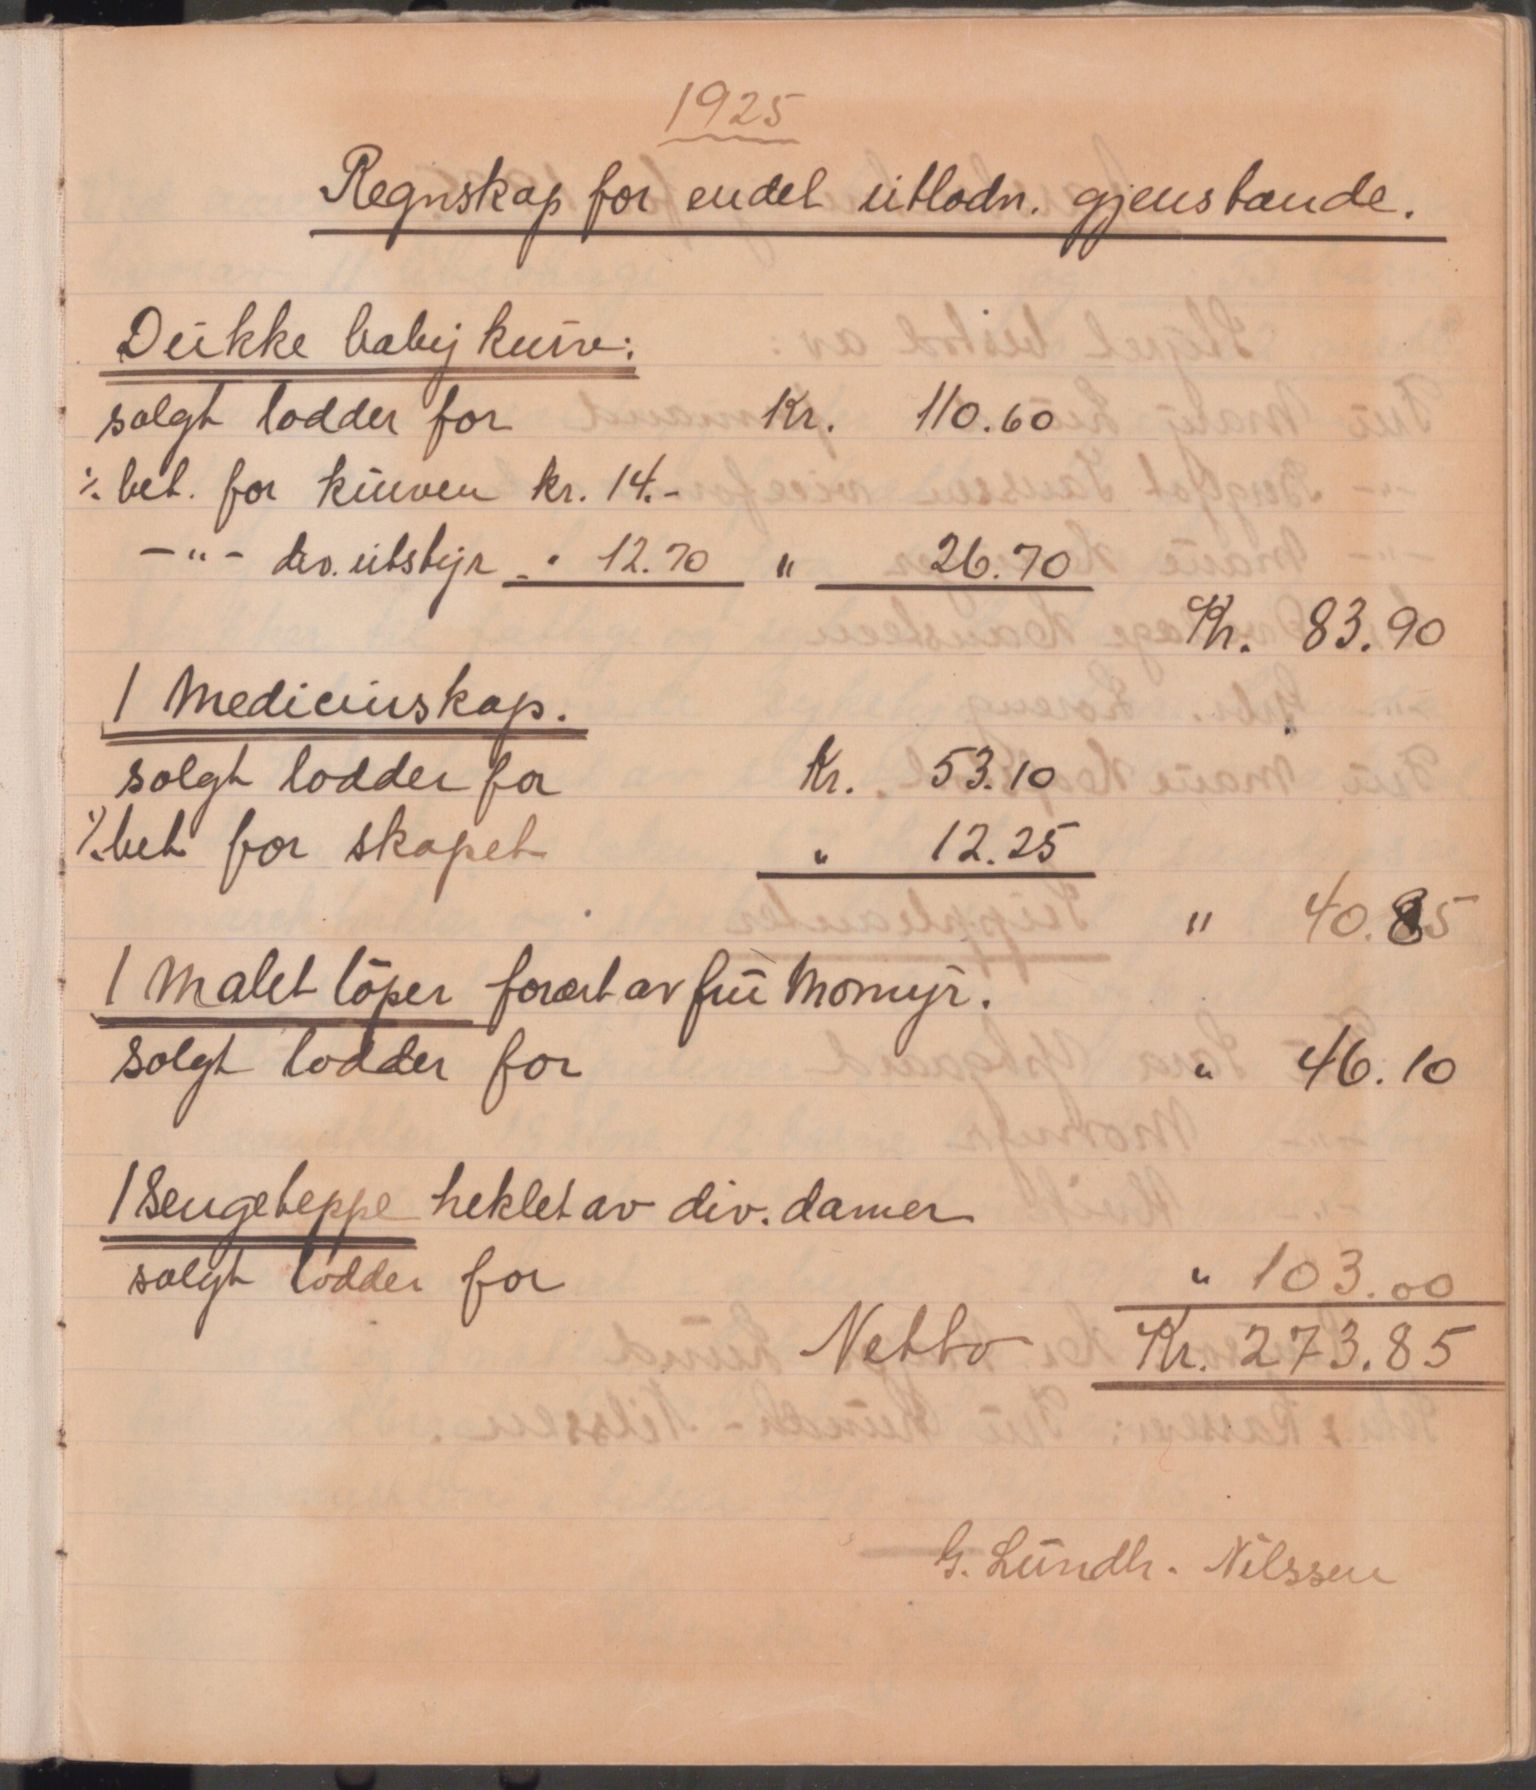 1925
Regnskap for endel utlodn. gjenstande.
Dukke babykurv:
solgt lodder for Kr. 110.60
% bet. for kurven kr. 14.-
-"- div. utstyr " 12.70 " 26.70
Kr. 83.90
1 Medicinskap.
solgt lodder for Kr. 53.10
% bet for skapet " 12.25
" 40.85
1 Malet löper forært av fru Momyr.
solgt lodder for " 46.10
1 Sengeteppe heklet av div. damer
solgt lodder for " 103.00
Netto Kr. 273.85
G. Lundh. Nilssen